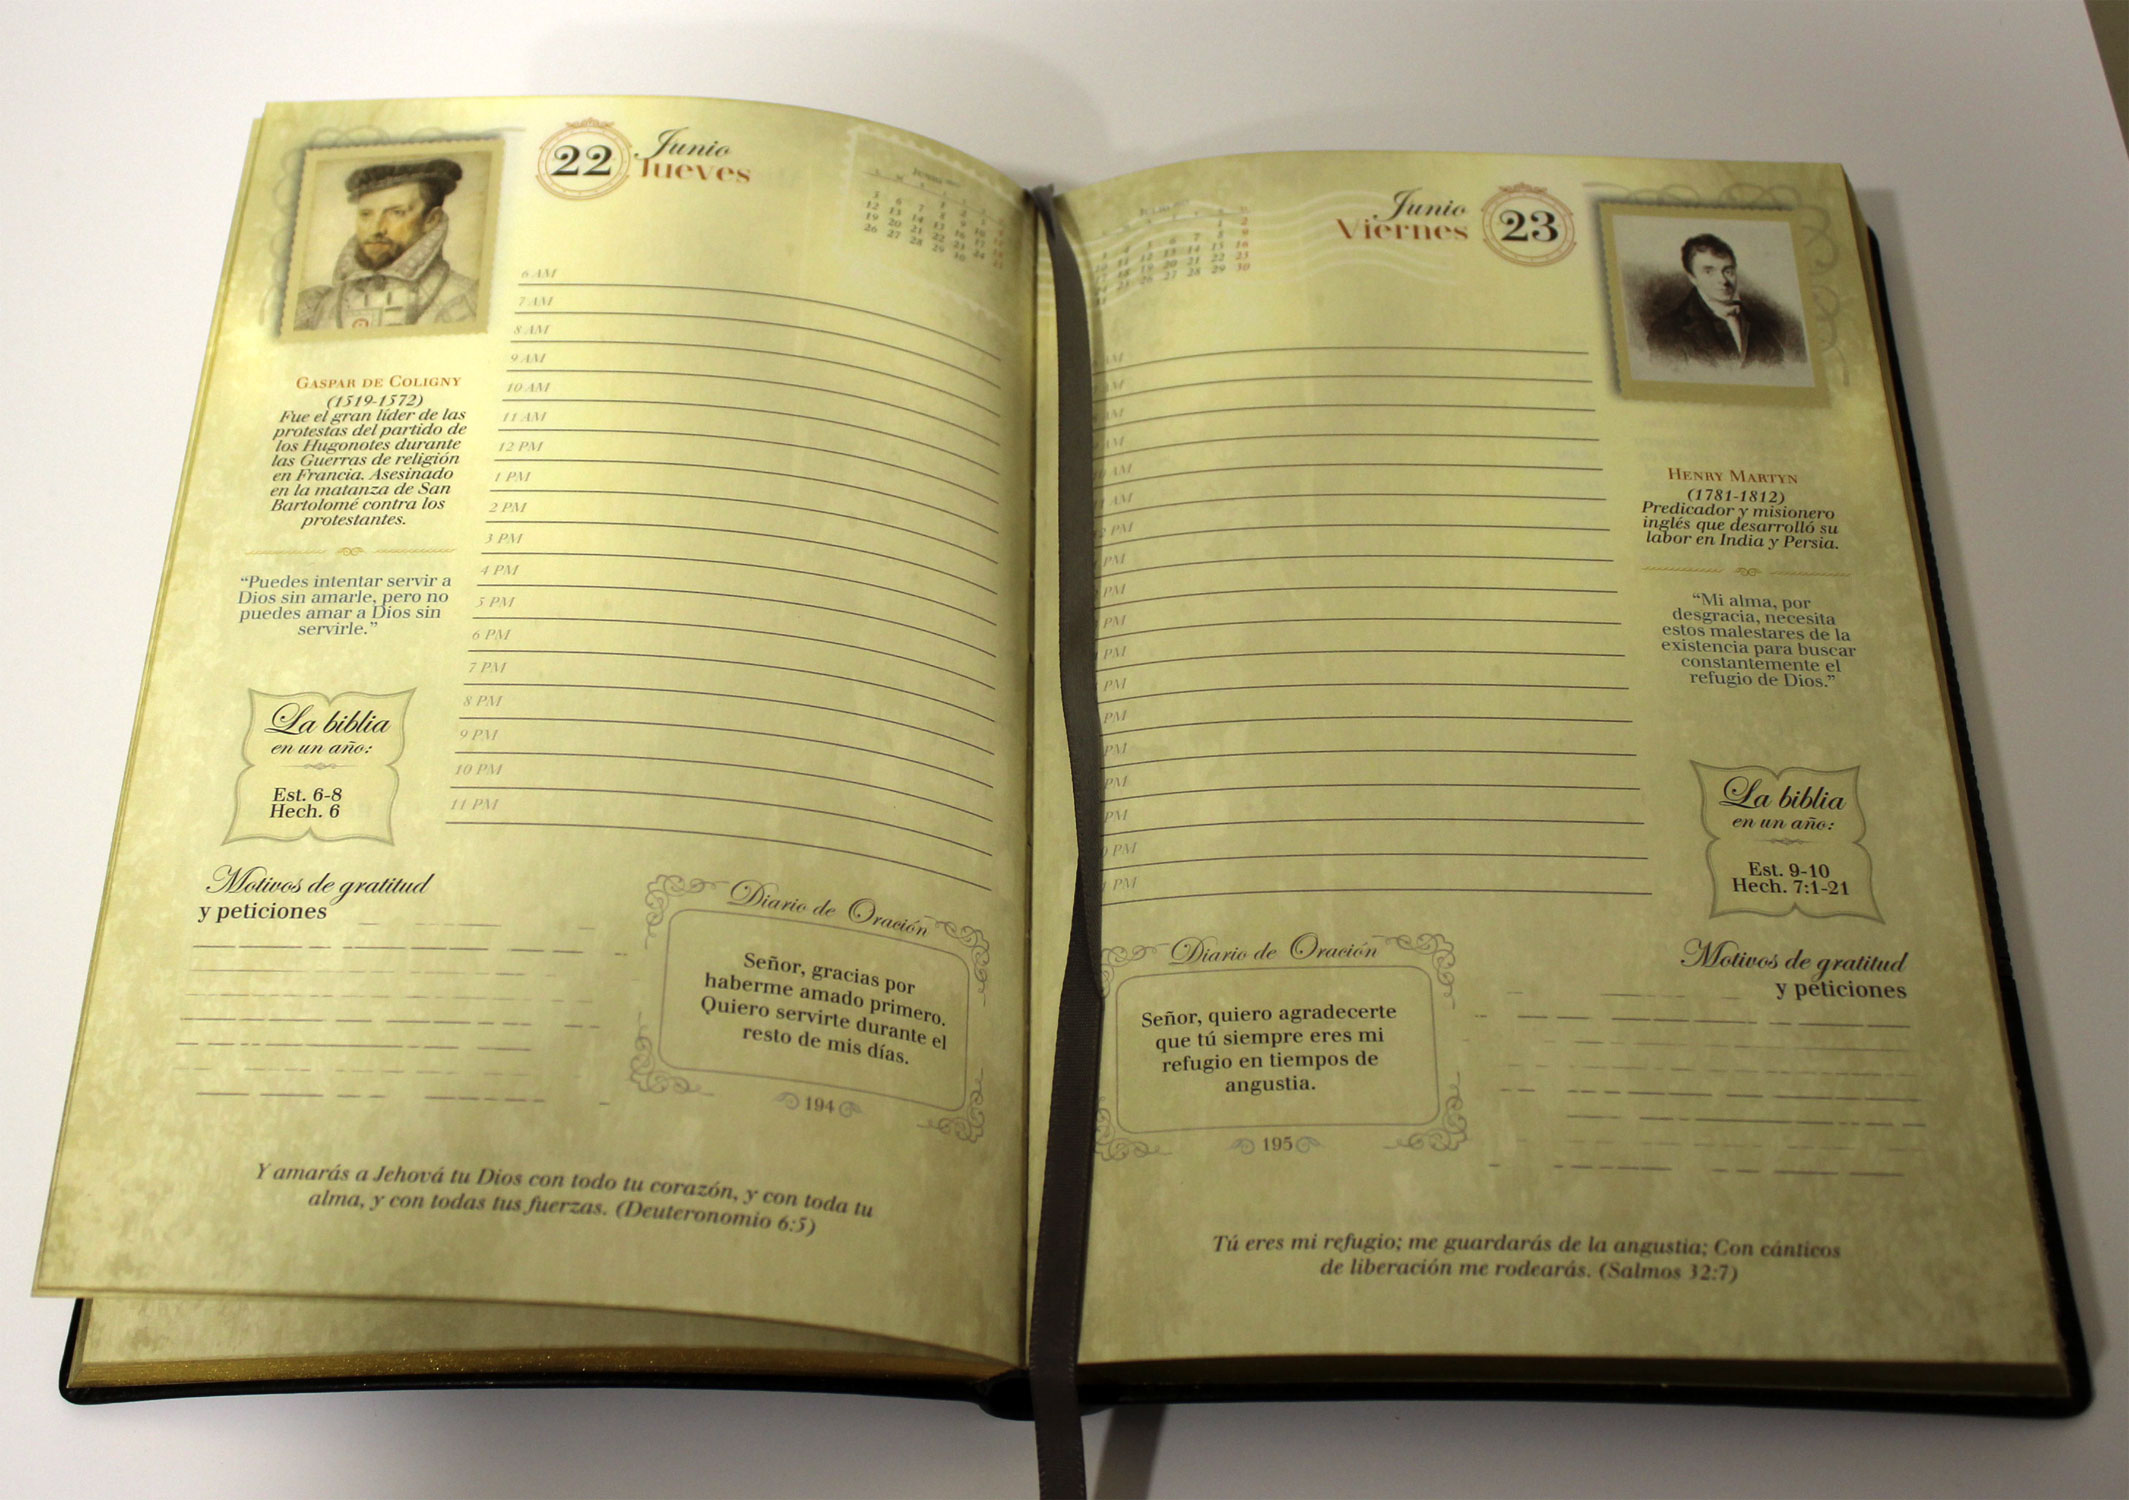 22
Junio
Jueves
6 AM
7 AM
8 AM
9 AM
10 AM
11 AM
12 PM
1 PM
2 PM
3 PM
4 PM
5 PM
6 PM
7 PM
8 PM
9 PM
10 PM
11 PM
GASPAR DE COLIGNY
(1519-1572)
Fue el gran líder de las
protestas del partido de
los Hugonotes durante
las Guerras de religión
en Francia. Asesinado
en la matanza de San
Bartolomé contra los
protestantes.
“Puedes intentar servir a
Dios sin amarle, pero no
puedes amar a Dios sin
servirle.”
La biblia
en un año:
Est. 6-8
Hech. 6
Motivos de gratitud
y peticiones
Diario de Oración
Señor, gracias por
haberme amado primero.
Quiero servirte durante el
resto de mis días.
194
Y amarás a Jehová tu Dios con todo tu corazón, y con toda tu
alma, y con todas tus fuerzas. (Deuteronomio 6:5)
Junio
Viernes
23
HENRY MARTYN
(1781-1812)
Predicador y misionero
inglés que desarrolló su
labor en India y Persia.
“Mi alma, por
desgracia, necesita
estos malestares de la
existencia para buscar
constantemente el
refugio de Dios.”
La biblia
en un año:
Est. 9-10
Hech. 7:1-21
Motivos de gratitud
y peticiones
Diario de Oración
Señor, quiero agradecerte
que tú siempre eres mi
refugio en tiempos de
angustia.
195
Tú eres mi refugio; me guardarás de la angustia; Con cánticos
de liberación me rodearás. (Salmos 32:7)